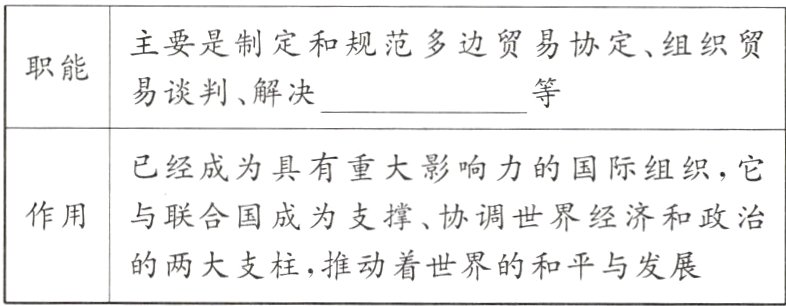 职能
主要是制定和规范多边贸易协定、组织贸
易谈判、解决__________等
作用
已经成为具有重大影响力的国际组织,它
与联合国成为支撑、协调世界经济和政治
的两大支柱,推动着世界的和平与发展